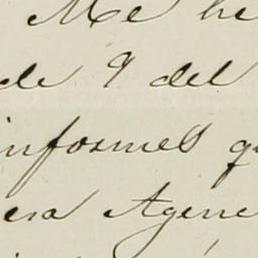 Me he
de 9 del
informes qu
era Agenc